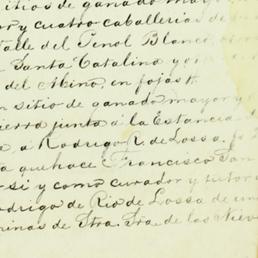 sitios de ganado mayor
y cuatro caballerias de
Valle del Peñol Blanco,
Santa Catalina y
del Mino, en fojas
un sitio de ganado mayor y
tierra junto á la Estancia
á Rodrigo R. de Lossa.
que hace Francisco San
si y como curador y tutor
Rodrigo de Rio de Lossa de un
minas de Ntra. Sra. de las Niev